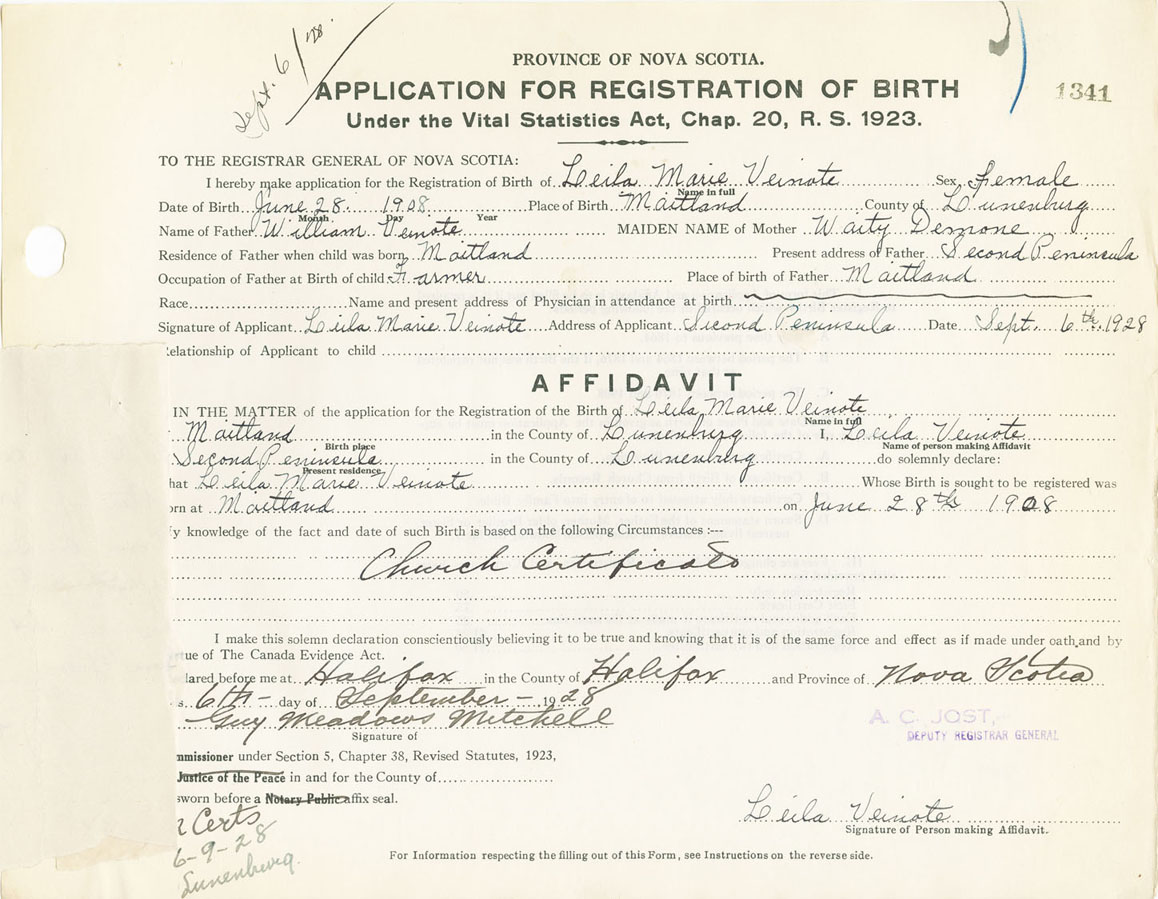 Sept. 6/'28.
PROVINCE OF NOVA SCOTIA.
APPLICATION FOR REGISTRATION OF BIRTH
1341
Under the Vital Statistics Act, Chap. 20, R. S. 1923.
TO THE REGISTRAR GENERAL OF NOVA SCOTIA:
I hereby make application for the Registration of Birth of Leila Marie Veinote Sex Female
Name in full
Date of Birth June 28 1908 Place of Birth Maitland County of Lunenburg
Month Day Year
Name of Father William Veinote MAIDEN NAME of Mother Waity Demone
Residence of Father when child was born Maitland Present address of Father Second Peninsula
Occupation of Father at Birth of child Farmer Place of birth of Father Maitland
Race Name and present address of Physician in attendance at birth
Signature of Applicant Leila Marie Veinote Address of Applicant Second Peninsula Date Sept. 6th. 1928
Relationship of Applicant to child
AFFIDAVIT
IN THE MATTER of the application for the Registration of the Birth of Leila Marie Veinote
Name in full
Maitland in the County of Lunenburg I, Leila Veinote
Birth place Name of person making Affidavit
Second Peninsula in the County of Lunenburg do solemnly declare:
Present residence
hat Leila Marie Veinote Whose Birth is sought to be registered was
orn at Maitland on June 28th 1908
y knowledge of the fact and date of such Birth is based on the following Circumstances :---
Church Certificate
I make this solemn declaration conscientiously believing it to be true and knowing that it is of the same force and effect as if made under oath, and by
ue of The Canada Evidence Act.
lared before me at Halifax in the County of Halifax and Province of Nova Scotia
s 6th - day of September - 1928
Guy Meadows Mitchell
Signature of
A. C. JOST,
DEPUTY REGISTRAR GENERAL
mmissioner under Section 5, Chapter 38, Revised Statutes, 1923,
Justice of the Peace in and for the County of
sworn before a Notary Public affix seal.
Leila Veinote
Signature of Person making Affidavit.
2 Certs
6-9-28
Lunenburg.
For Information respecting the filling out of this Form, see Instructions on the reverse side.